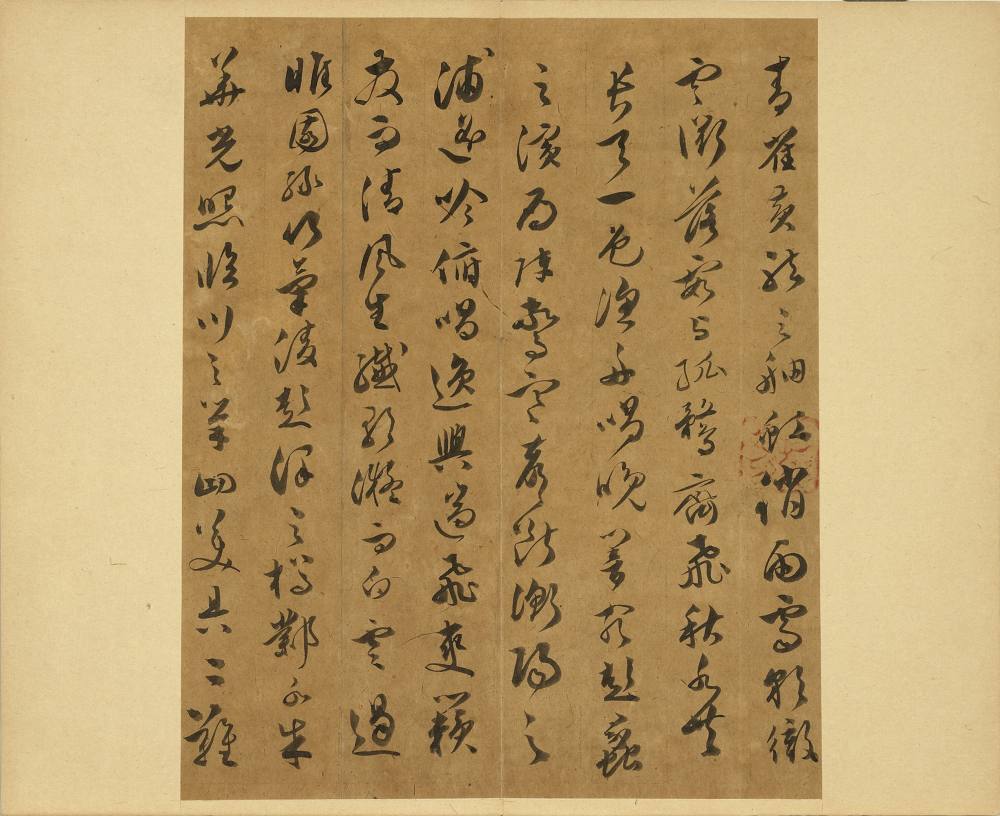 青雀黃龍之舳虹銷雨霽彩徹
雲衢落霞與孤鶩齊飛秋水共
長天一色漁舟唱晚響窮彭蠡
之濱雁陣驚寒聲斷衡陽之
浦遙吟俯唱逸興遄飛爽籟
發而清風生纖歌凝而白雲遏
睢園綠竹氣凌彭澤之樽鄴水朱
華光照臨川之筆四美具二難